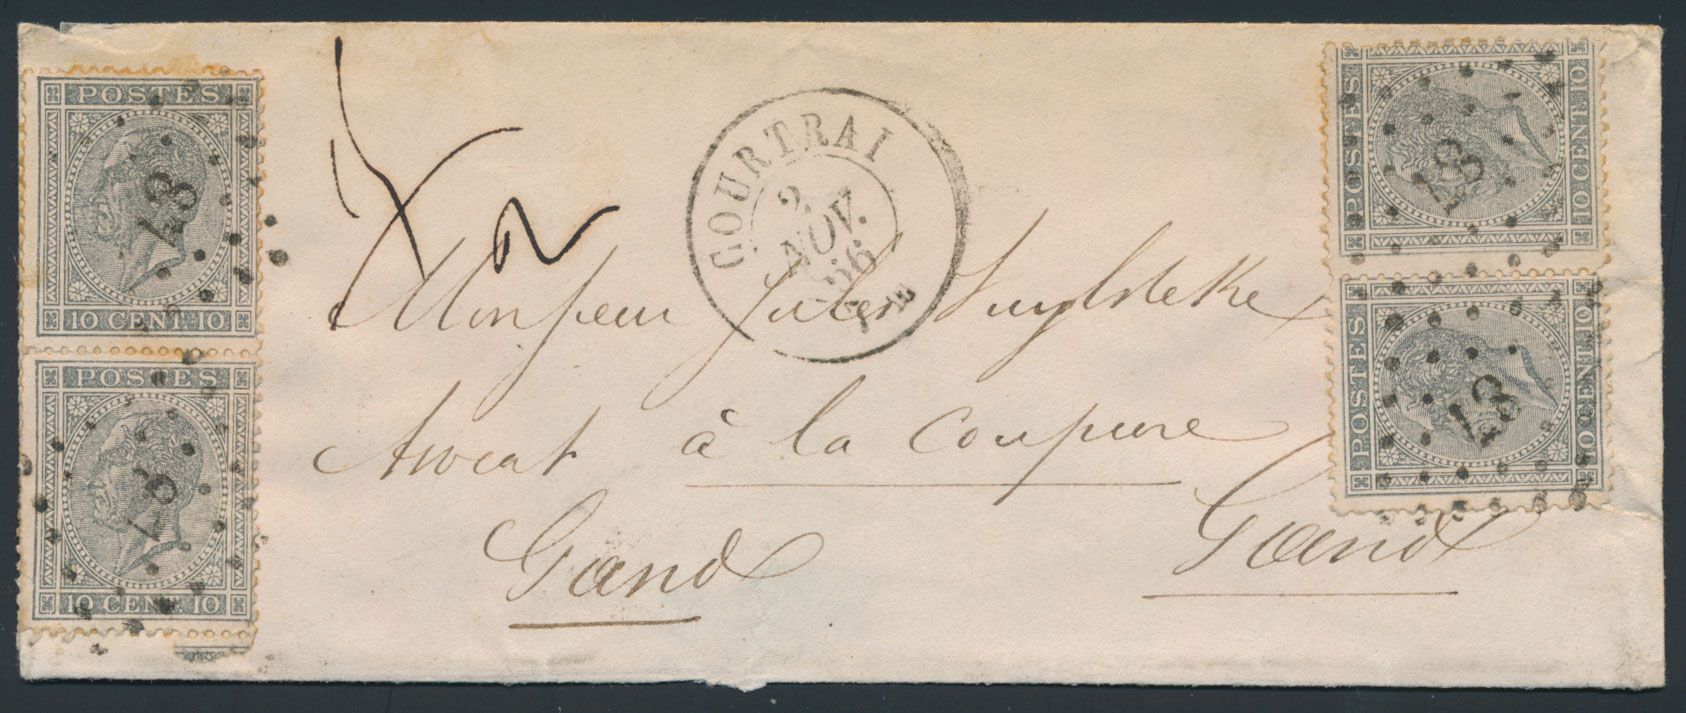 POSTES
87
10 CENT. 10
POSTES
87
10 CENT. 10
COURTRAI
2
NOV.
66
POSTES
10 CENT. 10
POSTES
10 CENT. 10
Monsieur Jules Vuylsteke
Avocat à la Coupure
Gand Gand